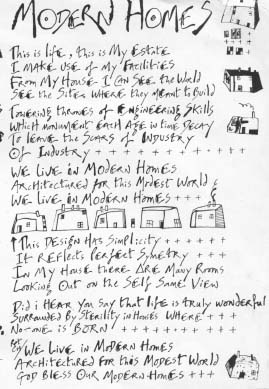 MODERN HOMES
This is life, this is My Estate
I MAKE USE of My Facilities
From My House I CAN See the World
See the Sites Where they Meant to Build
Towering thrones of Engineering Skills
Which monument each Age in time Decay
To leave the Scars of INDUSTRY
Of Industry + + + + + + + + + +
WE LIVE IN MODERN HOMES
Architectured for this Modest World
WE LIVE IN MODERN HOMES + + +
This Design Has Simplicity + + + + + +
It Reflects Perfect Symetry + + + +
In My House there Are Many Rooms
Looking Out on the Self Same View
Did i Hear You Say that life is truly wonderful
Surrounded By Sterility in Homes WHERE + + +
No-one is BORN + + + + + + + + + +
WE LIVE IN MODERN HOMES
Architectured For this Modest World
GOD BLESS OUR MODERN HOMES + + +